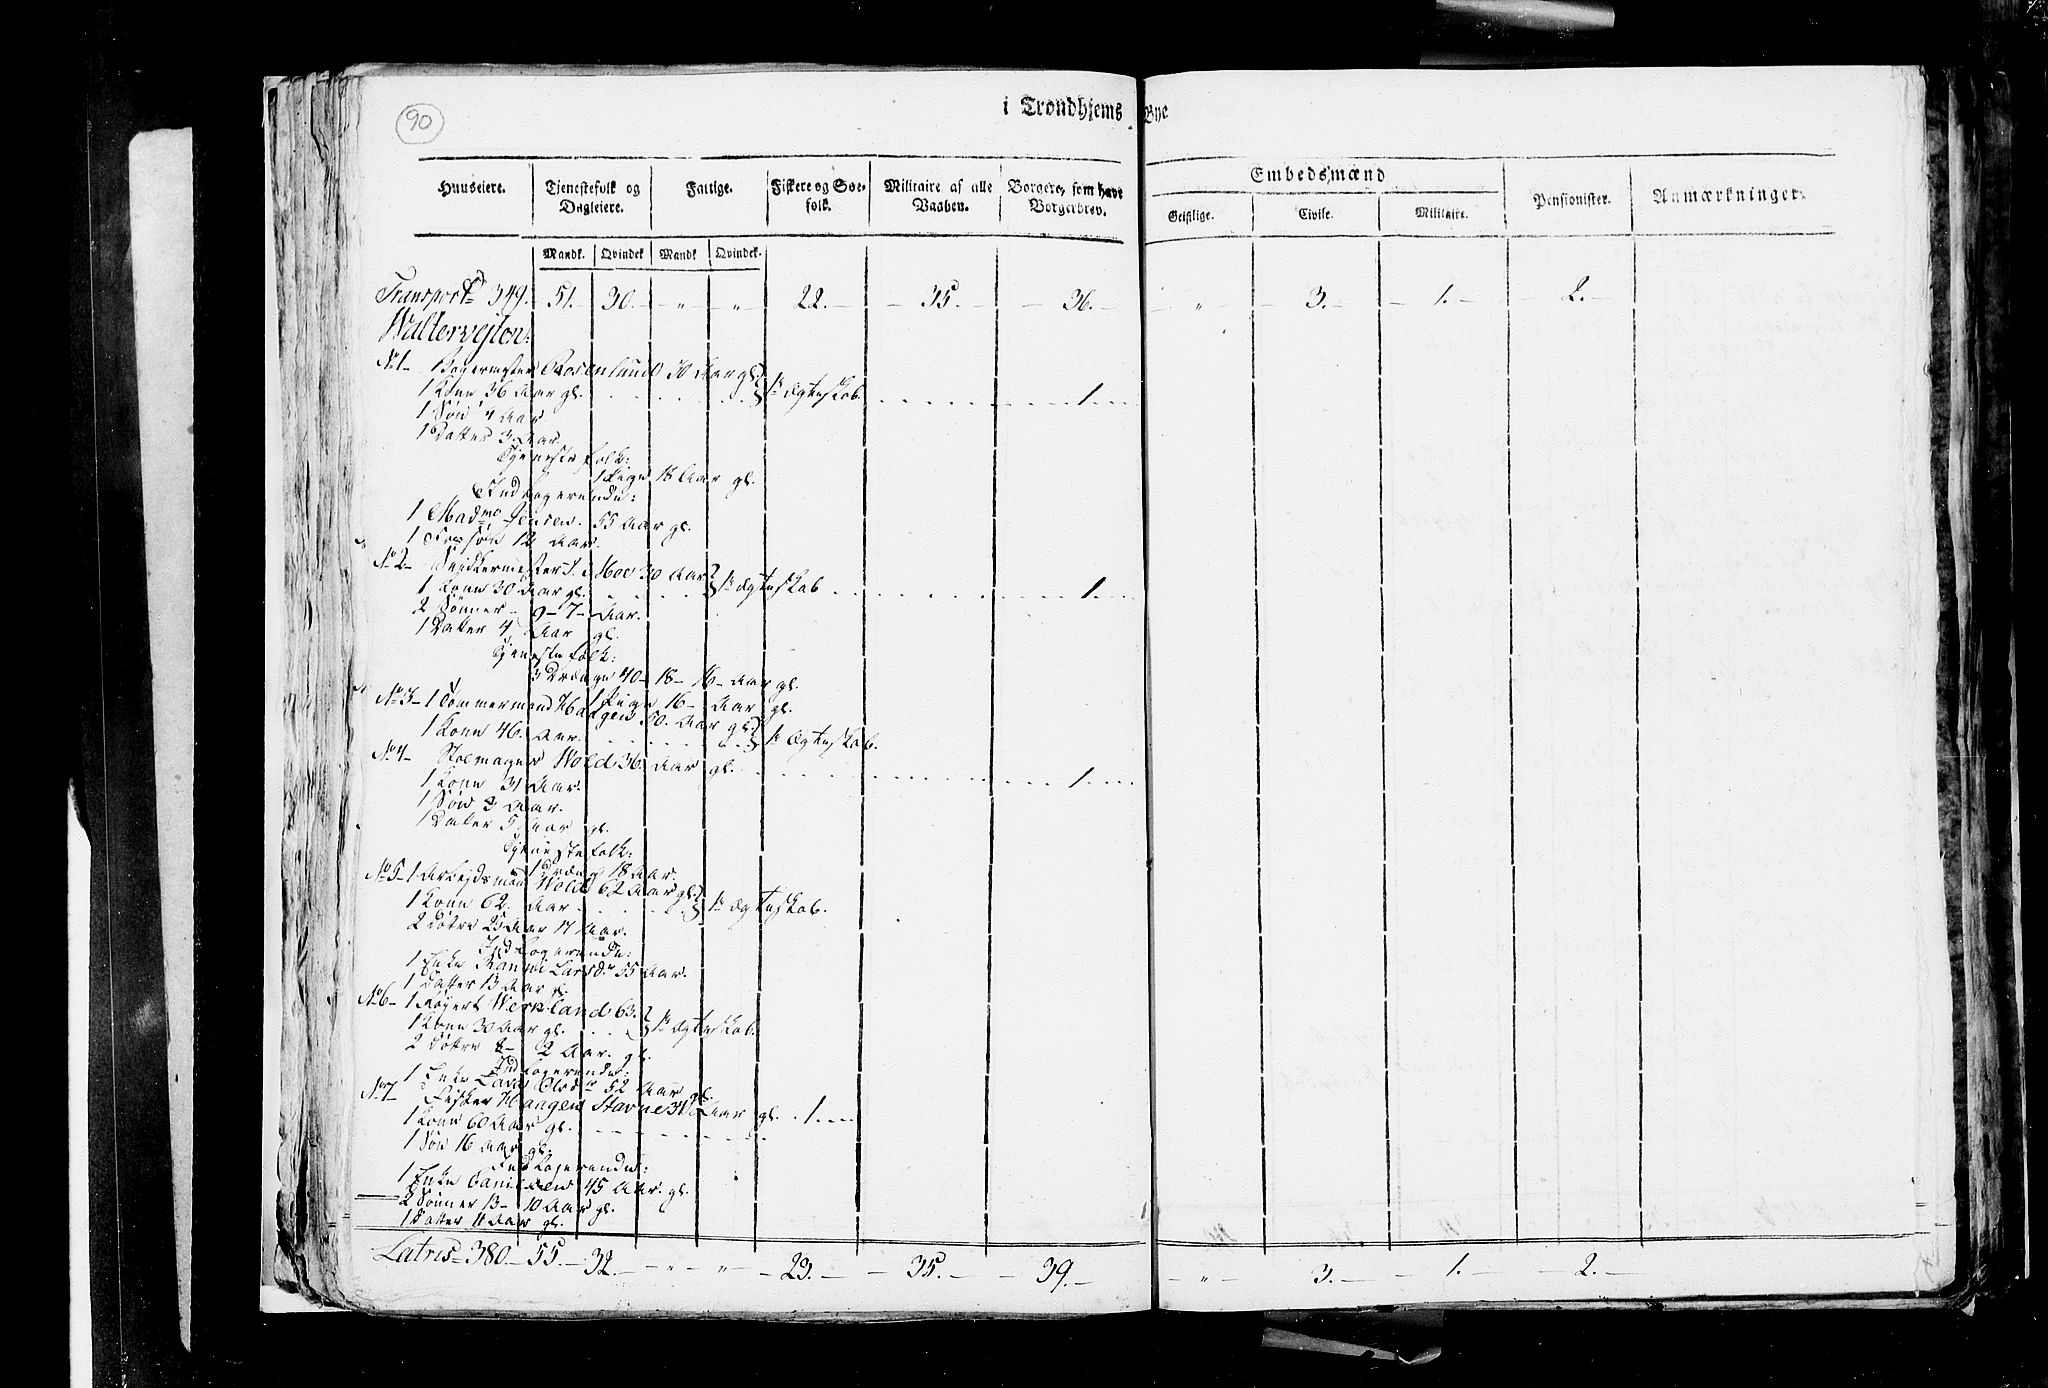 90
i Trondhjems Bye
Huuseiere. Tjenestefolk og Dagleiere. Fattige. Fiskere og Søefolk. Militaire af alle Vaaben. Borgere, som have Borgerbrev. Embedsmænd Pensionister. Anmærkninger.
Geistlige. Civile. Militaire.
Mandk. Qvindek Mandk Qvindek.
Transport 349. 51. 30. " " 22. 35. 36. " 3. 1. 2.
No 1 Bagermester Rosenlund 30 Aar gl.
1 Kone 36 Aar gl. 1te Ægteskab. 1.
1 Søn 4 Aar
1 Datter 3 Aar.
Tjenestefolk:
1 Pige 18 Aar gl.
Indlogerende:
1 Madme Jensen. 55 Aar gl.
1 Søn 12 Aar.
No 2 Snidkermester Moe 30 Aar
1 Kone 30 Aar gl. 1te Ægteskab 1.
2 Sønner 9 – 7 – Aar.
1 Datter 4 Aar gl.
Tjenestefolk:
3 Drenge 40 – 18 – 16 – Aar gl.
1 Pige 16 – Aar gl.
No 3 – 1 Tømmermand Haagen 50. Aar gl.
1 Kone 46. Aar. 1te Ægteskab.
No 4 Stolmager Wold 36. Aar gl. 1.
1 Kone 31 Aar.
1 Søn 3 Aar.
1 Datter 5 Aar gl.
Tjenestefolk:
1 Dreng 18 Aar.
No 5 – 1 Arbejdsmand Wold 62 Aar gl.
1 Kone 62. Aar 1te Ægteskab.
2 Døtre 25 Aar 17 Aar.
Indlogerende:
1 Enke Larsdr 55 Aar.
1 Datter 13 Aar gl.
No 6 – 1 Werksland 63.
1 Kone 30 Aar gl. 1te Ægteskab.
2 Døtre 8 – 2 Aar. gl.
Indlogerende:
1 Enke Olsdr 52 Aar gl.
No 7 Fisker Haagen Stavne 34 Aar gl. 1.
1 Kone 60 Aar gl.
1 Søn 16 Aar gl.
Indlogerende:
1 Enke Danielsen 45 Aar. gl.
2 Sønner 13 – 10 Aar gl.
1 Datter 11 Aar gl.
Latris 380 – 55. – 32. – " " – 23. – 35. – 39. – " 3. – 1. – 2. –